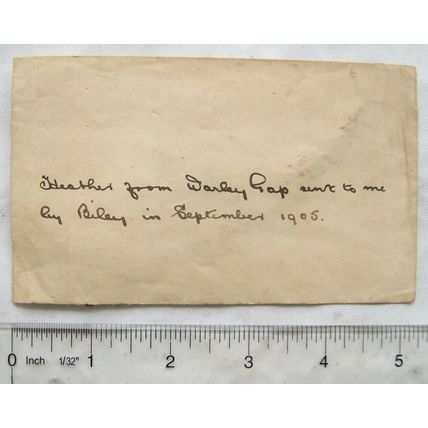 Heather from Darley Gap sent to me
by Biley in September 1905.
0 Inch 1/32" 1 2 3 4 5